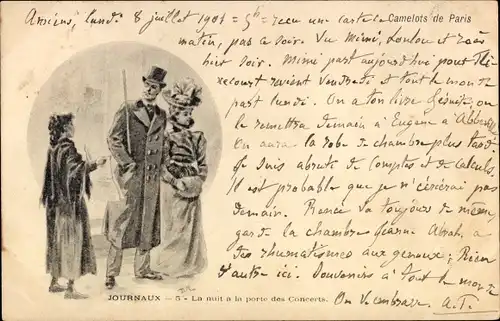 Camelots de Paris
Amiens, lundi 8 juillet 1901 = 5h = reçu une carte ce
matin, pas ce soir. Vu Mimi, Loulou et
hier soir. Mimi part aujourd'hui pour
revient Vendredi et tout le monde
part lundi. On a ton livre Jésuite, on
le remettra demain à Eugène à
On aura la robe de chambre plus tard.
Je suis de comptes et de calculs.
Il est probable que je n'écrirai pas
demain. Renée va toujours de même
garde la chambre Jeanne. a
des rhumatismes aux genoux; Rien
d'autre ici. Souvenirs à tout le monde
On t'embrasse. A.T.
JOURNAUX — 5 - La nuit à la porte des Concerts.